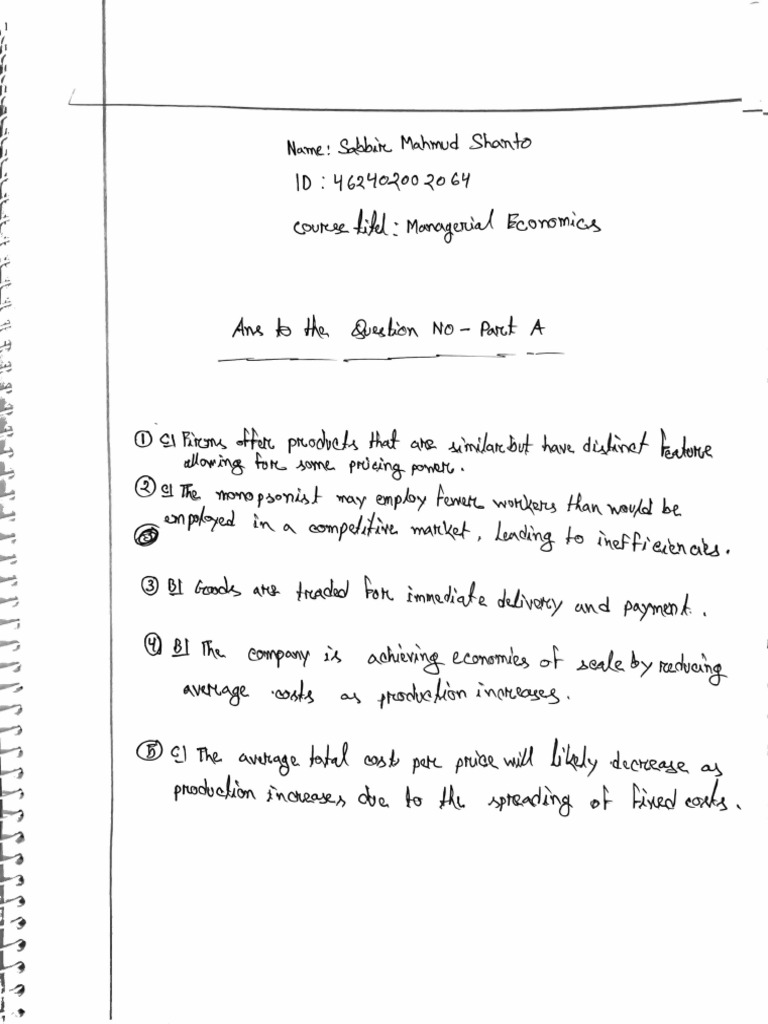 Name: Sabbir Mahmud Shanto
ID : 462402002064
Course titel : Managerial Economics
Ans to the Question NO - Part A
① C) Firms offer products that are similar but have distinct feature
allowing for some pricing power.
② C) The monopsonist may employ fewer workers than would be
employed in a competitive market, leading to inefficiencies.
③ B) Goods are traded for immediate delivery and payment.
④ B) The company is achieving economies of scale by reducing
average costs as production increases.
⑤ C) The average total cost per price will likely decrease as
production increases due to the spreading of fixed costs.